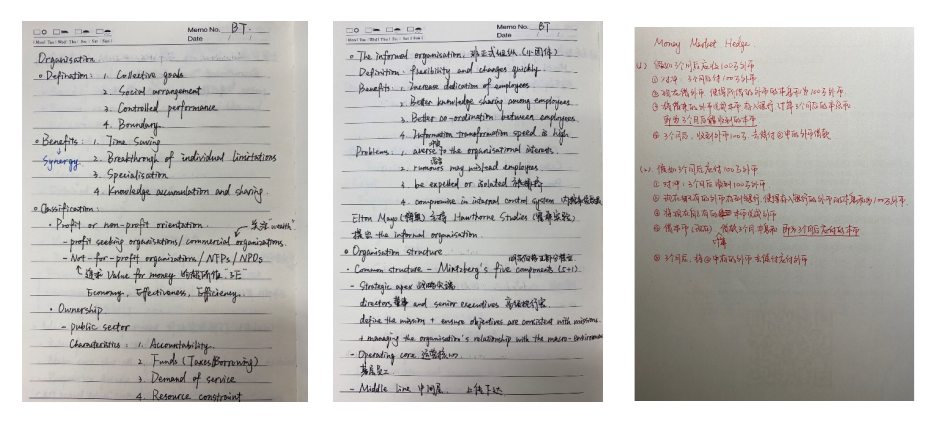 Memo No. BT.
Mon Tue Wed Thu Fri Sat Sun
Date
Organisation
Defination: 1. Collective goals
2. Social arrangement
3. Controlled performance
4. Boundary.
Benefits: 1. Time Saving
Synergy
2. Breakthrough of individual limitations
3. Specialisation
4. Knowledge accumulation and sharing.
Classification:
Profit or non-profit orientation. 关注"wealth"
- profit seeking organisations/commercial organizations.
- Not-for-profit organizations/NFPs/NPOs
Value for money "3E"
Economy, Effectiveness, Efficiency.
Ownership
- public sector
Characteristics: 1. Accountability.
2. Funds (Taxes/Borrowing)
3. Demand of service
4. Resource constraint
Memo No. BT
Mon Tue Wed Thu Fri Sat Sun
Date
The informal organisation. 非正式组织 (小团体)
Definition: flexibility and changes quickly.
Benefits: 1. increase dedication of employees
2. Better knowledge sharing among employees.
3. Better co-ordination between employees
4. Information transformation speed is high
Problems: 1. averse to the organisational interests.
2. rumours may mislead employees
3. be expelled or isolated
4. compromise in internal control system
Elton Mayo 主持 Hawthorne Studies
提出 the informal organisation.
Organisation structure
Common structure - Mintzberg's five components (5+1)
- Strategic apex 战略顶端
directors 董事 and senior executives 高级执行官
define the mission + ensure objectives are consistent with missions.
+ managing the organisation's relationship with the macro-environment
- Operating core 运营核心
基层员工
- Middle line 中间层. 上传下达
Money Market Hedge
(1) 假如3个月后应收100万外币
① 对冲: 3个月后付100万外币
② 现在借外币 使得所借的外币的本息和为100万外币
③ 将借来的外币换成本币 存入银行 计算3个月后的本息和
即为3个月后能收到的本币
④ 3个月后, 收到外币100万, 去偿付②中的外币借款
(2) 假如3个月后应付100万外币
① 对冲: 3个月后收到100万外币
④ 借本币(现在) 借款3个月本息和 即为3个月后应付的本币
计算